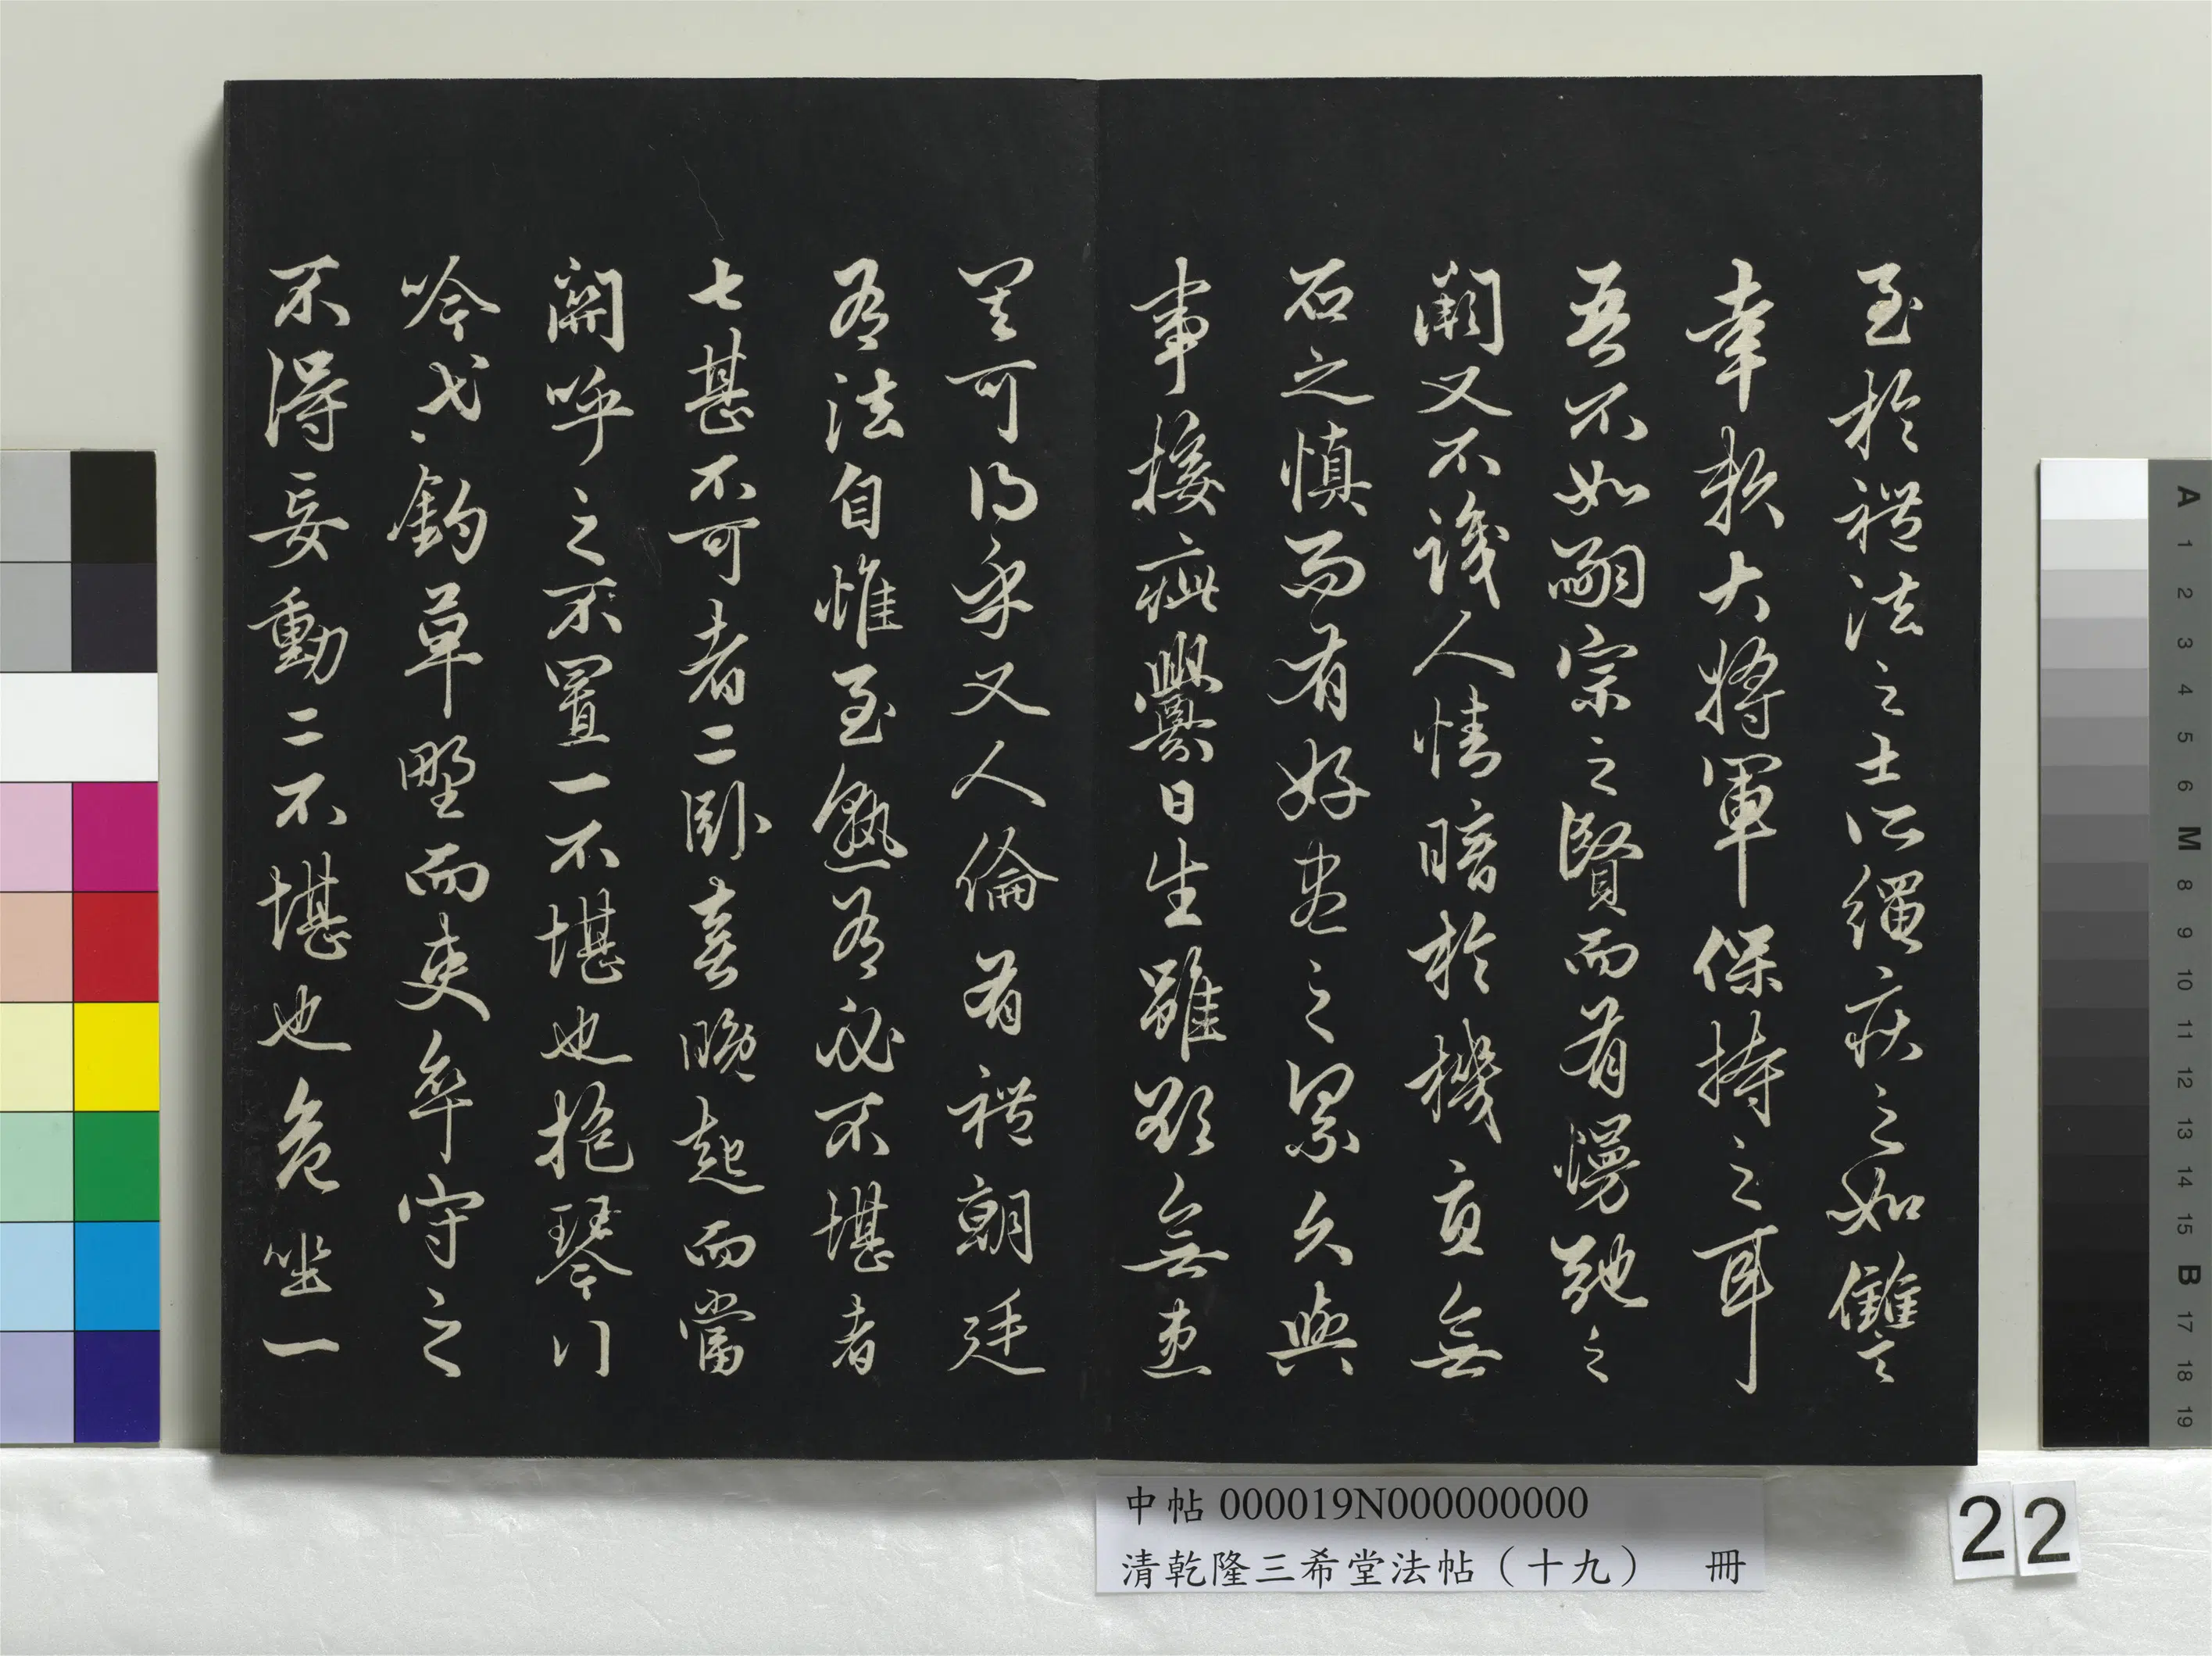 至於禮法之士所繩疾之如讐
幸賴大將軍保持之耳
吾不如嗣宗之賢而有慢弛之
闕又不識人情暗於機宜無
石之慎而有好盡之累久與
事接疵釁日生雖欲無患
其可得乎又人倫有禮朝廷
有法自惟至熟有必不堪者
七甚不可者二臥喜晚起而當
關呼之不置一不堪也抱琴行
吟弋釣草野而吏卒守之
不得妄動二不堪也危坐一
中帖 000019N000000000
清乾隆三希堂法帖（十九） 冊
22
A 1 2 3 4 5 6 M 8 9 10 11 12 13 14 15 B 17 18 19